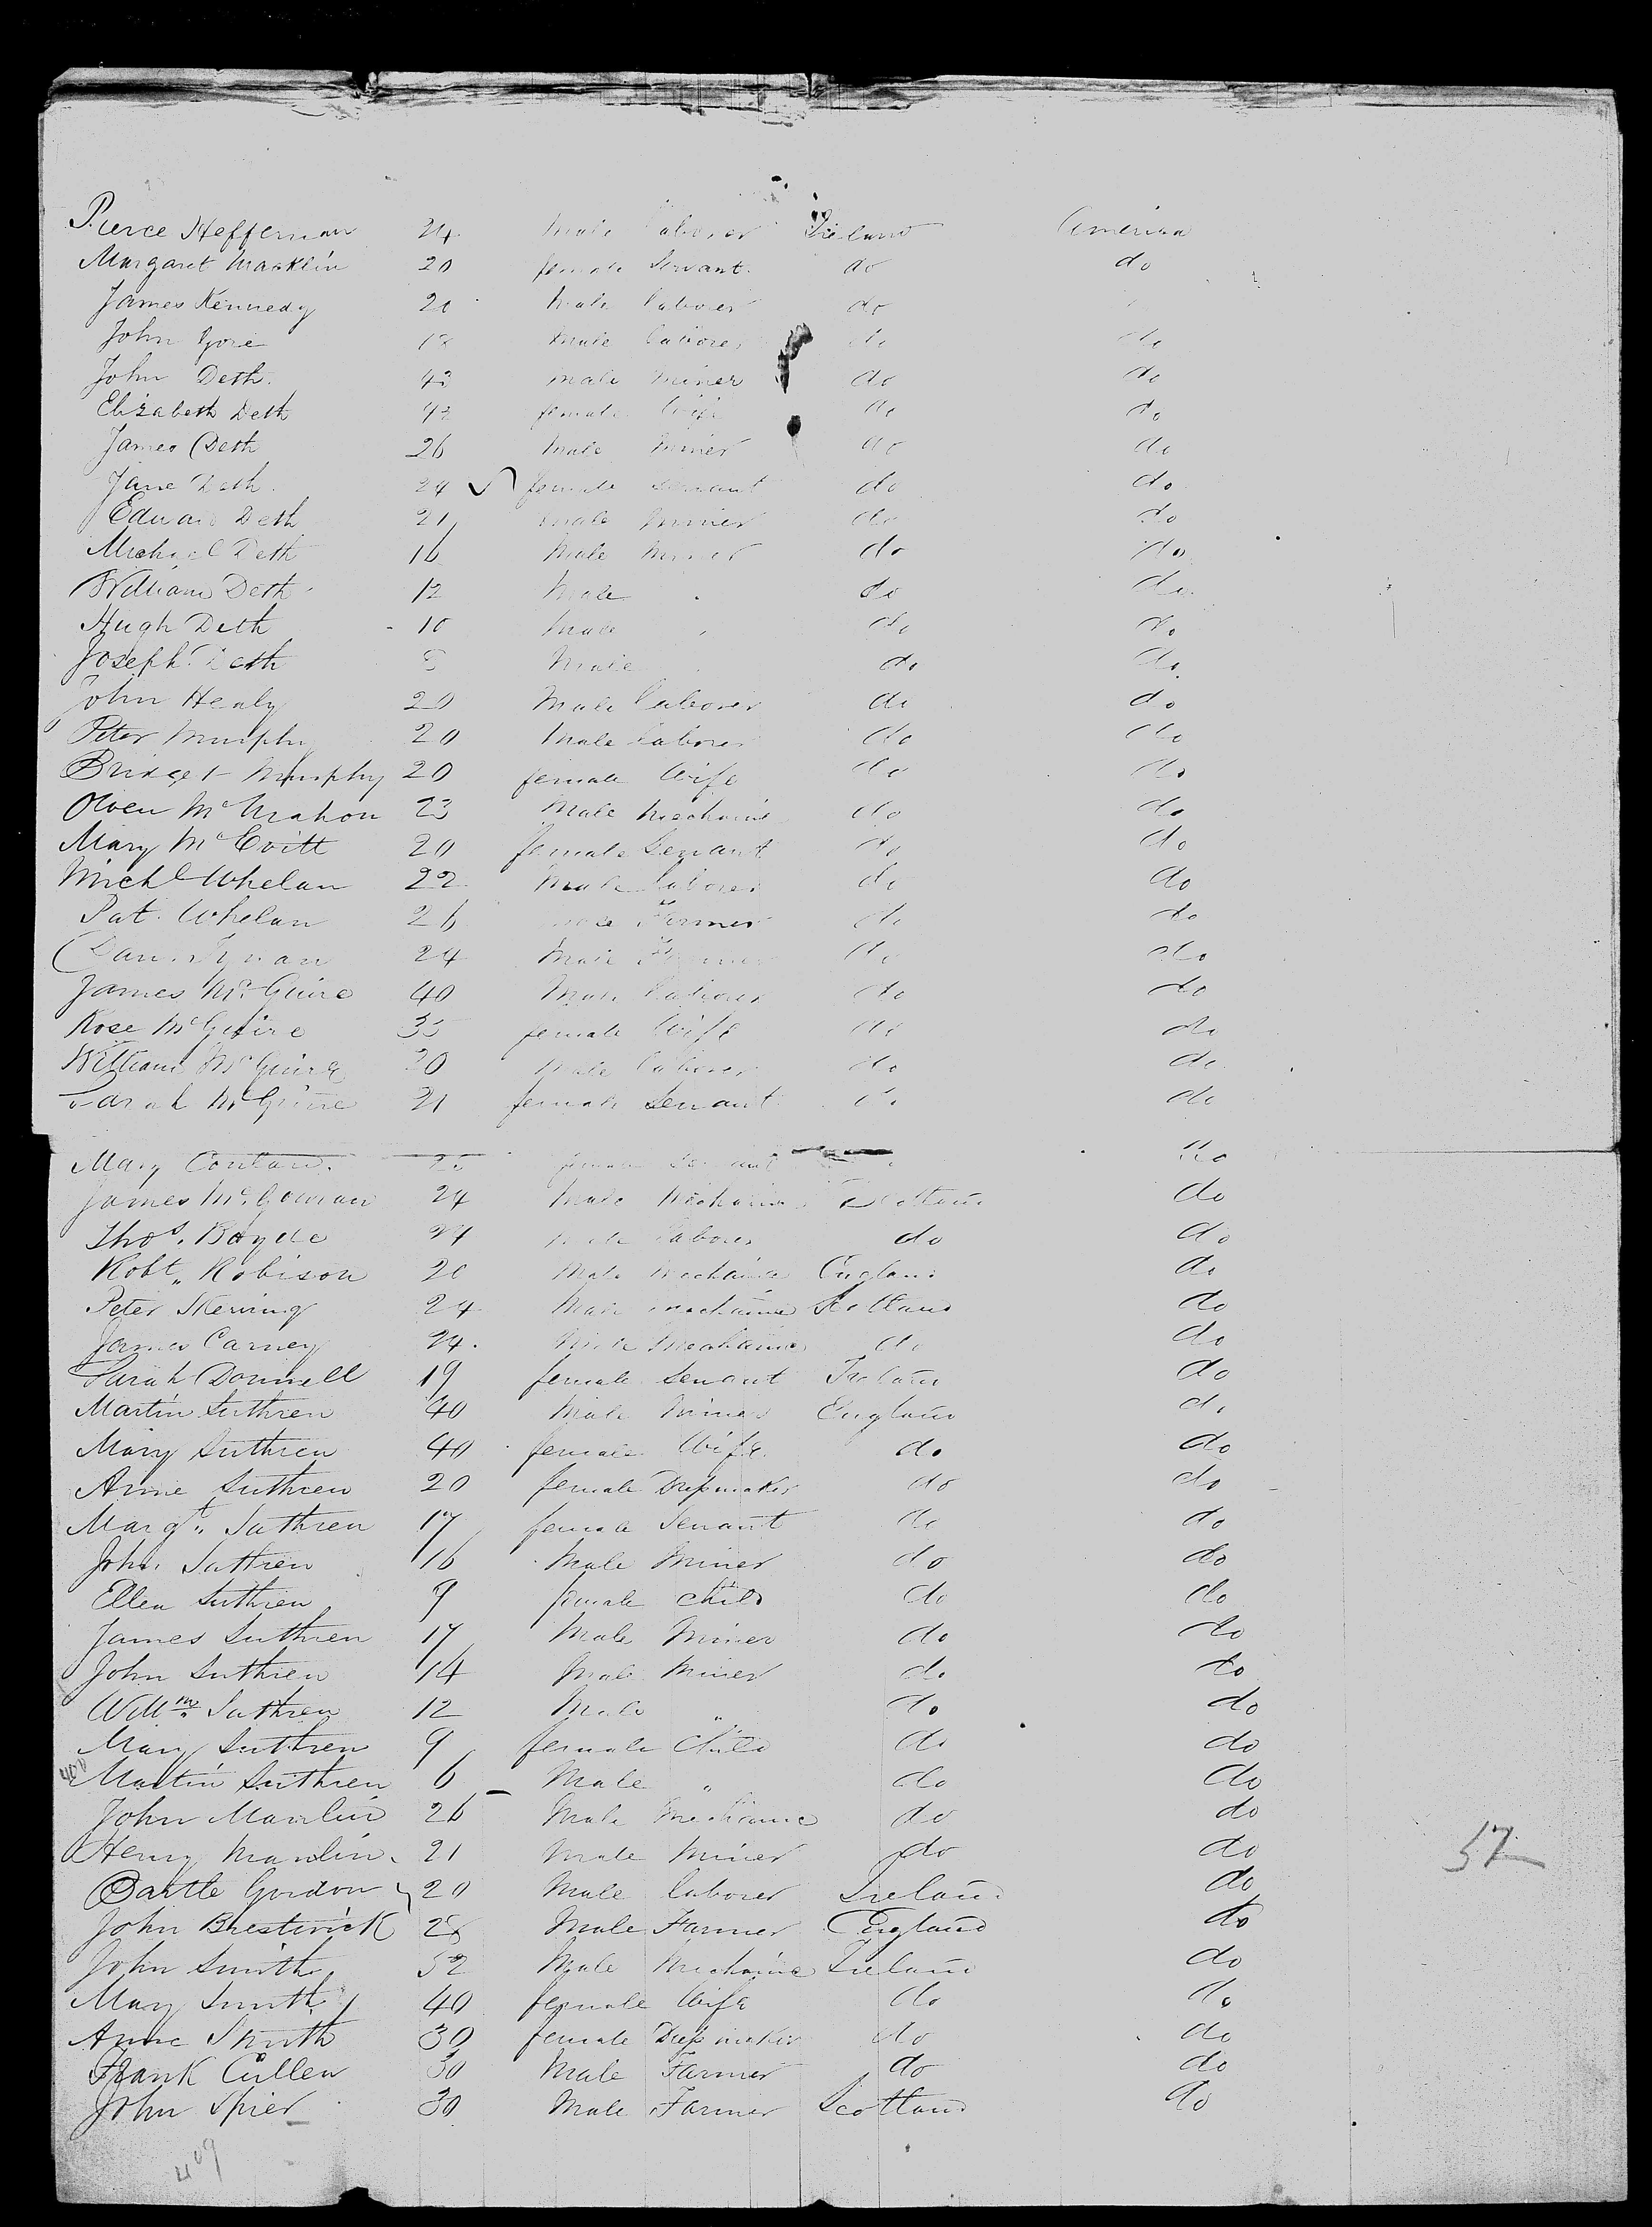 Pierce Heffernan 24 Male laborer Ireland America
Margaret Macklin 20 female Servant do do
James Kennedy 20 Male laborer do
John Gore 18 Male laborer do do
John Deth 43 Male Miner do do
Elizabeth Deth 42 female Wife do do
James Deth 26 Male Miner do do
Jane Deth 24 female Servant do do
Edward Deth 21 Male Miner do do
Michael Deth 16 Male Miner do do
William Deth 12 Male do do
Hugh Deth 10 Male do do
Joseph Deth Male do do
John Healy 20 Male laborer do do
Peter Murphy 20 Male laborer do do
Bridget Murphy 20 female Wife do do
Owen McMahon 23 Male Mechanic do do
Mary McEvitt 20 female Servant do do
Michl Whelan 22 Male laborer do do
Pat. Whelan 26 Male Farmer do do
24 Male do do
James McGuire 40 Male laborer do do
Rose McGuire 35 female Wife do do
William McGuire 20 Male laborer do do
Sarah McGuire 21 female Servant do do
Mary female Servant do
James McGowan 24 Male Mechanic Scotland do
Thos. Boyde 24 Male laborer do do
Robt. Robison 20 Male Mechanic England do
Peter Skeving 24 Male Mechanic Scotland do
James Carney 24. Male Mechanic do do
Sarah Donnell 19 female Servant Ireland do
Martin Suthren 40 Male Miner England do
Mary Suthren 40 female Wife do do
Anne Suthren 20 female Dressmaker do do
Margt. Suthren 17 female Servant do do
John Suthren 16 Male Miner do do
Ellen Suthren 9 female Child do do
James Suthren 17 Male Miner do do
John Suthren 14 Male Miner do do
Willm. Suthren 12 Male " do do
Mary Suthren 9 female Child do do
400 Martin Suthren 6 Male " do do
John Manlin 26 Male Mechanic do do
Henry Manlin 21 Male Miner do do
57
Bartle Gordon 20 Male laborer Ireland do
John Brestwick 28 Male Farmer England do
John Smith 52 Male Mechanic Ireland do
Mary Smith 40 female Wife do do
Anne Smith 30 female Dressmaker do do
Frank Cullen 30 Male Farmer do do
John Spier 30 Male Farmer Scotland do
409